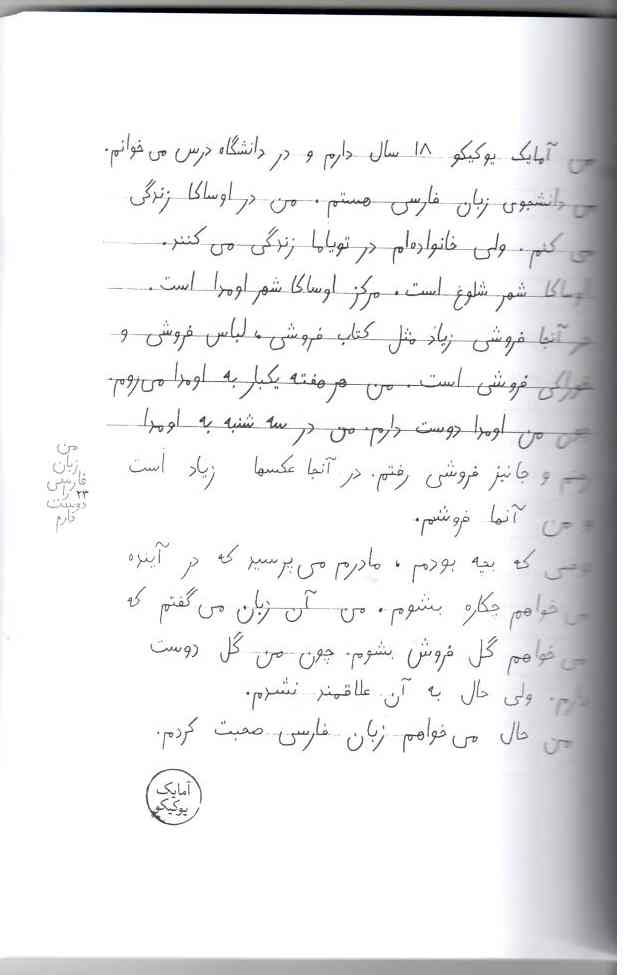 من آمایک یوکیکو ۱۸ سال دارم و در دانشگاه درس می خوانم.
من دانشجوی زبان فارسی هستم. من در اوساکا زندگی
می کنم. ولی خانواده‌ام در تویاما زندگی می کنند.
اوساکا شهر شلوغ است. مرکز اوساکا شهر اومدا است.
در آنجا فروشی زیاد مثل کتاب فروشی، لباس فروشی و
خوراکی فروشی است. من هر هفته یکبار به اومدا می‌روم.
من اومدا دوست دارم. من در سه شنبه به اومدا
رفتم و جانیز فروشی رفتم. در آنجا عکسها زیاد است
و من آنما فروشتم.
که بچه بودم، مادرم می‌پرسید که در آینده
می خواهم چکاره بشوم. من آن زبان می‌گفتم که
می خواهم گل فروش بشوم. چون من گل دوست
دارم. ولی حال به آن علاقمند نشدم.
من حال می‌خواهم زبان فارسی صحبت کردم.
آمایک
یوکیکو
من
زبان
فارسی
را ۲۳
دوست
دارم